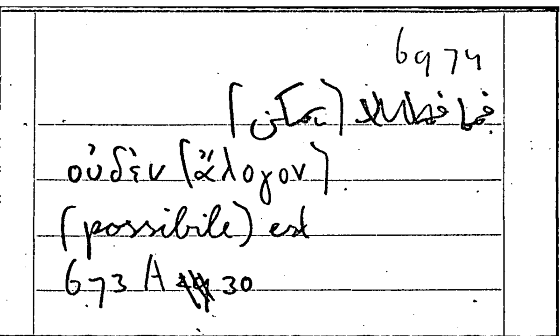 6974
(يمكن)
οὐδὲν (ἄλογον)
(possibile) est
673 A 30